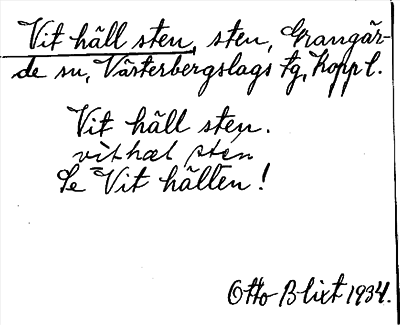 Vit häll sten, sten, Grangär-
de sn, Västerbergslags tg, Koppl.
Vit häll sten.
vit hæl sten
Se Vit hällen!
Otto Blixt 1934.